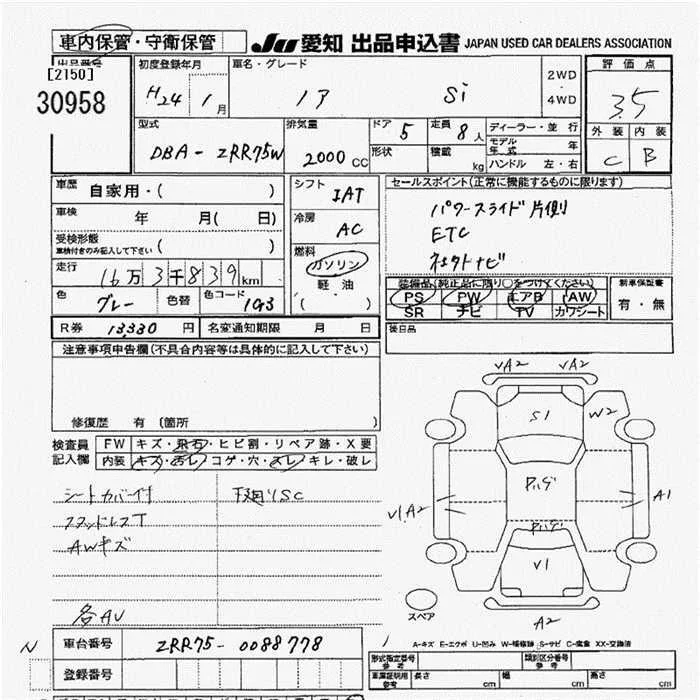 車内保管・守衛保管 Ju 愛知 出品申込書 JAPAN USED CAR DEALERS ASSOCIATION
出品番号 初度登録年月 車名・グレード 2WD ・ 4WD 評価点
[2150]
30958 H24年 1月 ノア Si 3.5
型式 排気量 ドア 5 定員 8人 ディーラー・並行 外装 内装
DBA-ZRR75W 2000CC 形状 積載 kg モデル年式 年 C B
ハンドル 左・右
車歴 自家用・( ) シフト IAT セールスポイント(正常に機能するものに限ります)
車検 年 月( 日) 冷房 AC パワースライド片側
受検形態 ( ) ETC
車検付きのみ記入して下さい 燃料 ガソリン
走行 16万3千839km 軽油 装備品(純正品に限り○をつけてください) 新車保証書
色 グレー 色替 色コード 1G3 ( ) PS PW エアB AW 有・無
SR ナビ TV カワシート
R券 13,330円 名変通知期限 月 日 後日品
注意事項申告欄(不具合内容等は具体的に記入して下さい)
修復歴 有(箇所 )
検査員記入欄 FW キズ・飛石・ヒビ割・リペア跡・X要
内装 キズ・汚レ・コゲ・穴・スレ・キレ・破レ
シートカバー付 下廻りSC
スタッドレスT
AWキズ
各AU
VA2 VA2
S1 W2
Pハゲ
V1,A2 A1
Pハゲ
V1
スペア A2
A-キズ E-エクボ U-凹み W-補修跡 S-サビ C-腐食 XX-交換済
N 車台番号 ZRR75-0088778
登録番号
形式指定番号 参考 類別区分番号 参考
車庫証明用 参考 長さ cm 幅 cm 高さ cm